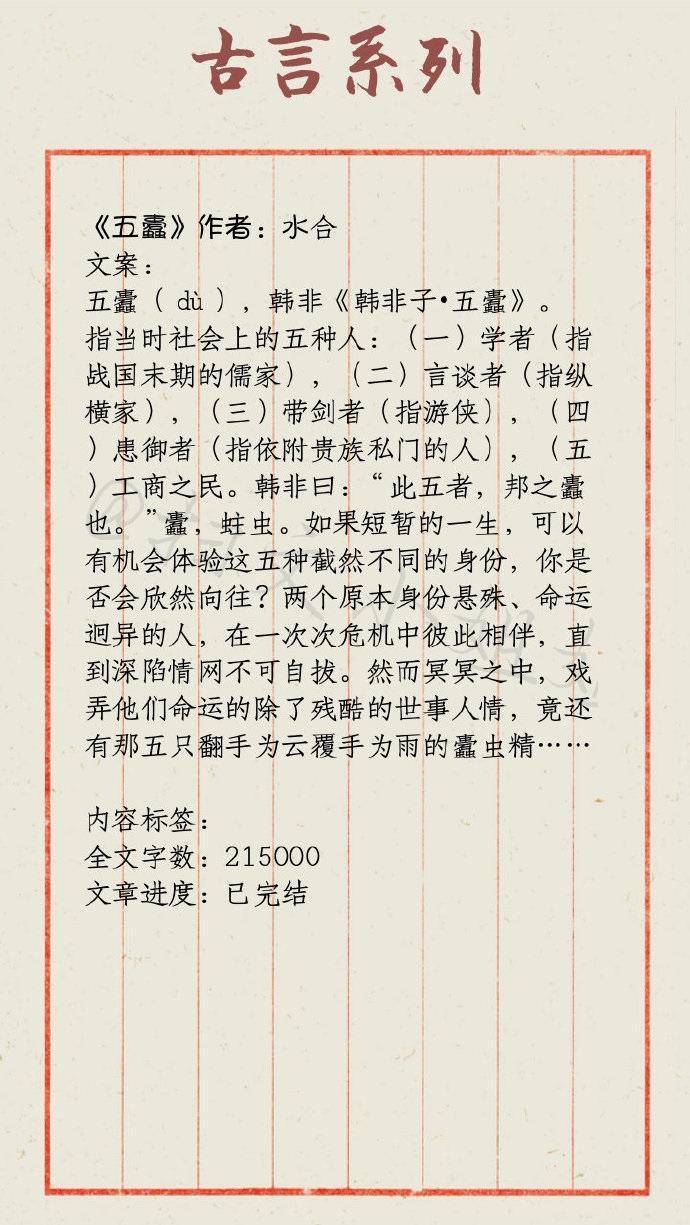 古言系列
《五蠹》作者：水合
文案：
五蠹（ dù ），韩非《韩非子•五蠹》。
指当时社会上的五种人：（一）学者（指
战国末期的儒家），（二）言谈者（指纵
横家），（三）带剑者（指游侠），（四
）患御者（指依附贵族私门的人），（五
）工商之民。韩非曰：“此五者，邦之蠹
也。”蠹，蛀虫。如果短暂的一生，可以
有机会体验这五种截然不同的身份，你是
否会欣然向往？两个原本身份悬殊、命运
迥异的人，在一次次危机中彼此相伴，直
到深陷情网不可自拔。然而冥冥之中，戏
弄他们命运的除了残酷的世事人情，竟还
有那五只翻手为云覆手为雨的蠹虫精……
内容标签：
全文字数：215000
文章进度：已完结